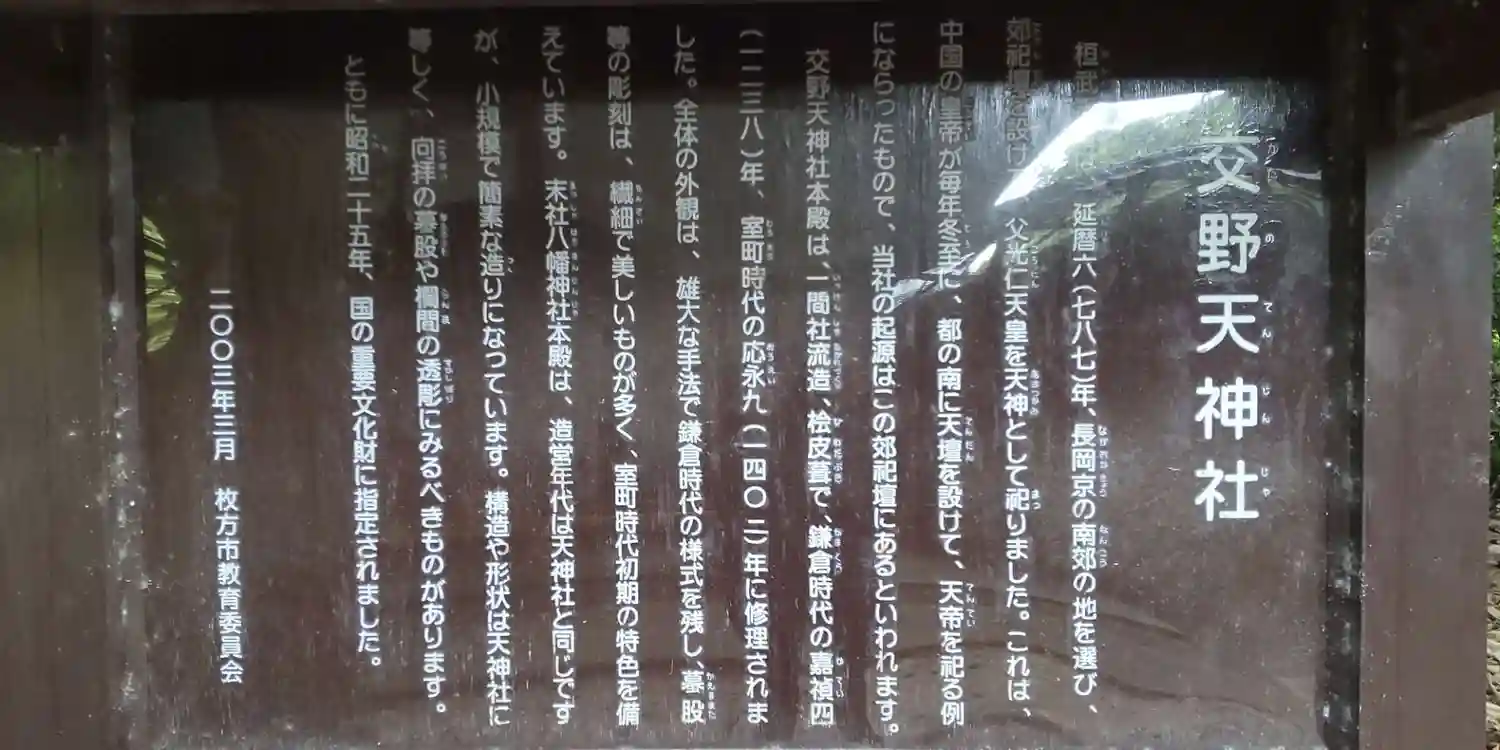 交野天神社
かたのてんじんじゃ
桓武 は 延暦六(七八七)年、長岡京の南郊の地を選び、
郊祀壇を設け 父光仁天皇を天神として祀りました。これは、
中国の皇帝が毎年冬至に、都の南に天壇を設けて、天帝を祀る例
にならったもので、当社の起源はこの郊祀壇にあるといわれます。
交野天神社本殿は、一間社流造、桧皮葺で、鎌倉時代の嘉禎四
(一二三八)年、室町時代の応永九(一四〇二)年に修理されま
した。全体の外観は、雄大な手法で鎌倉時代の様式を残し、蟇股
等の彫刻は、繊細で美しいものが多く、室町時代初期の特色を備
えています。末社八幡神社本殿は、造営年代は天神社と同じです
が、小規模で簡素な造りになっています。構造や形状は天神社に
等しく、向拝の蟇股や欄間の透彫にみるべきものがあります。
ともに昭和二十五年、国の重要文化財に指定されました。
二〇〇三年三月 枚方市教育委員会